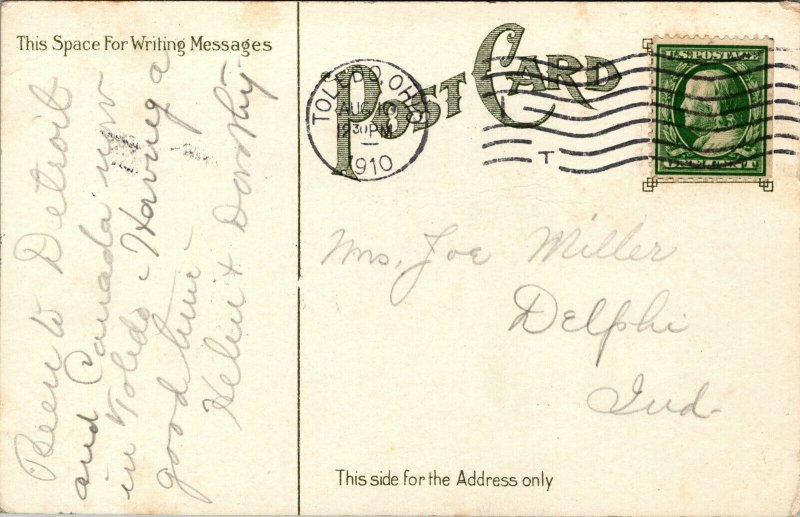 This Space For Writing Messages
POST CARD
TOLEDO, OHIO
AUG 10
1230PM
1910
T
U.S. POSTAGE
Been to Detroit
and Canada now
in Toledo - Having a
good time -
Helen + Dorothy
Mrs. Joe Miller
Delphi
Ind.
This side for the Address only